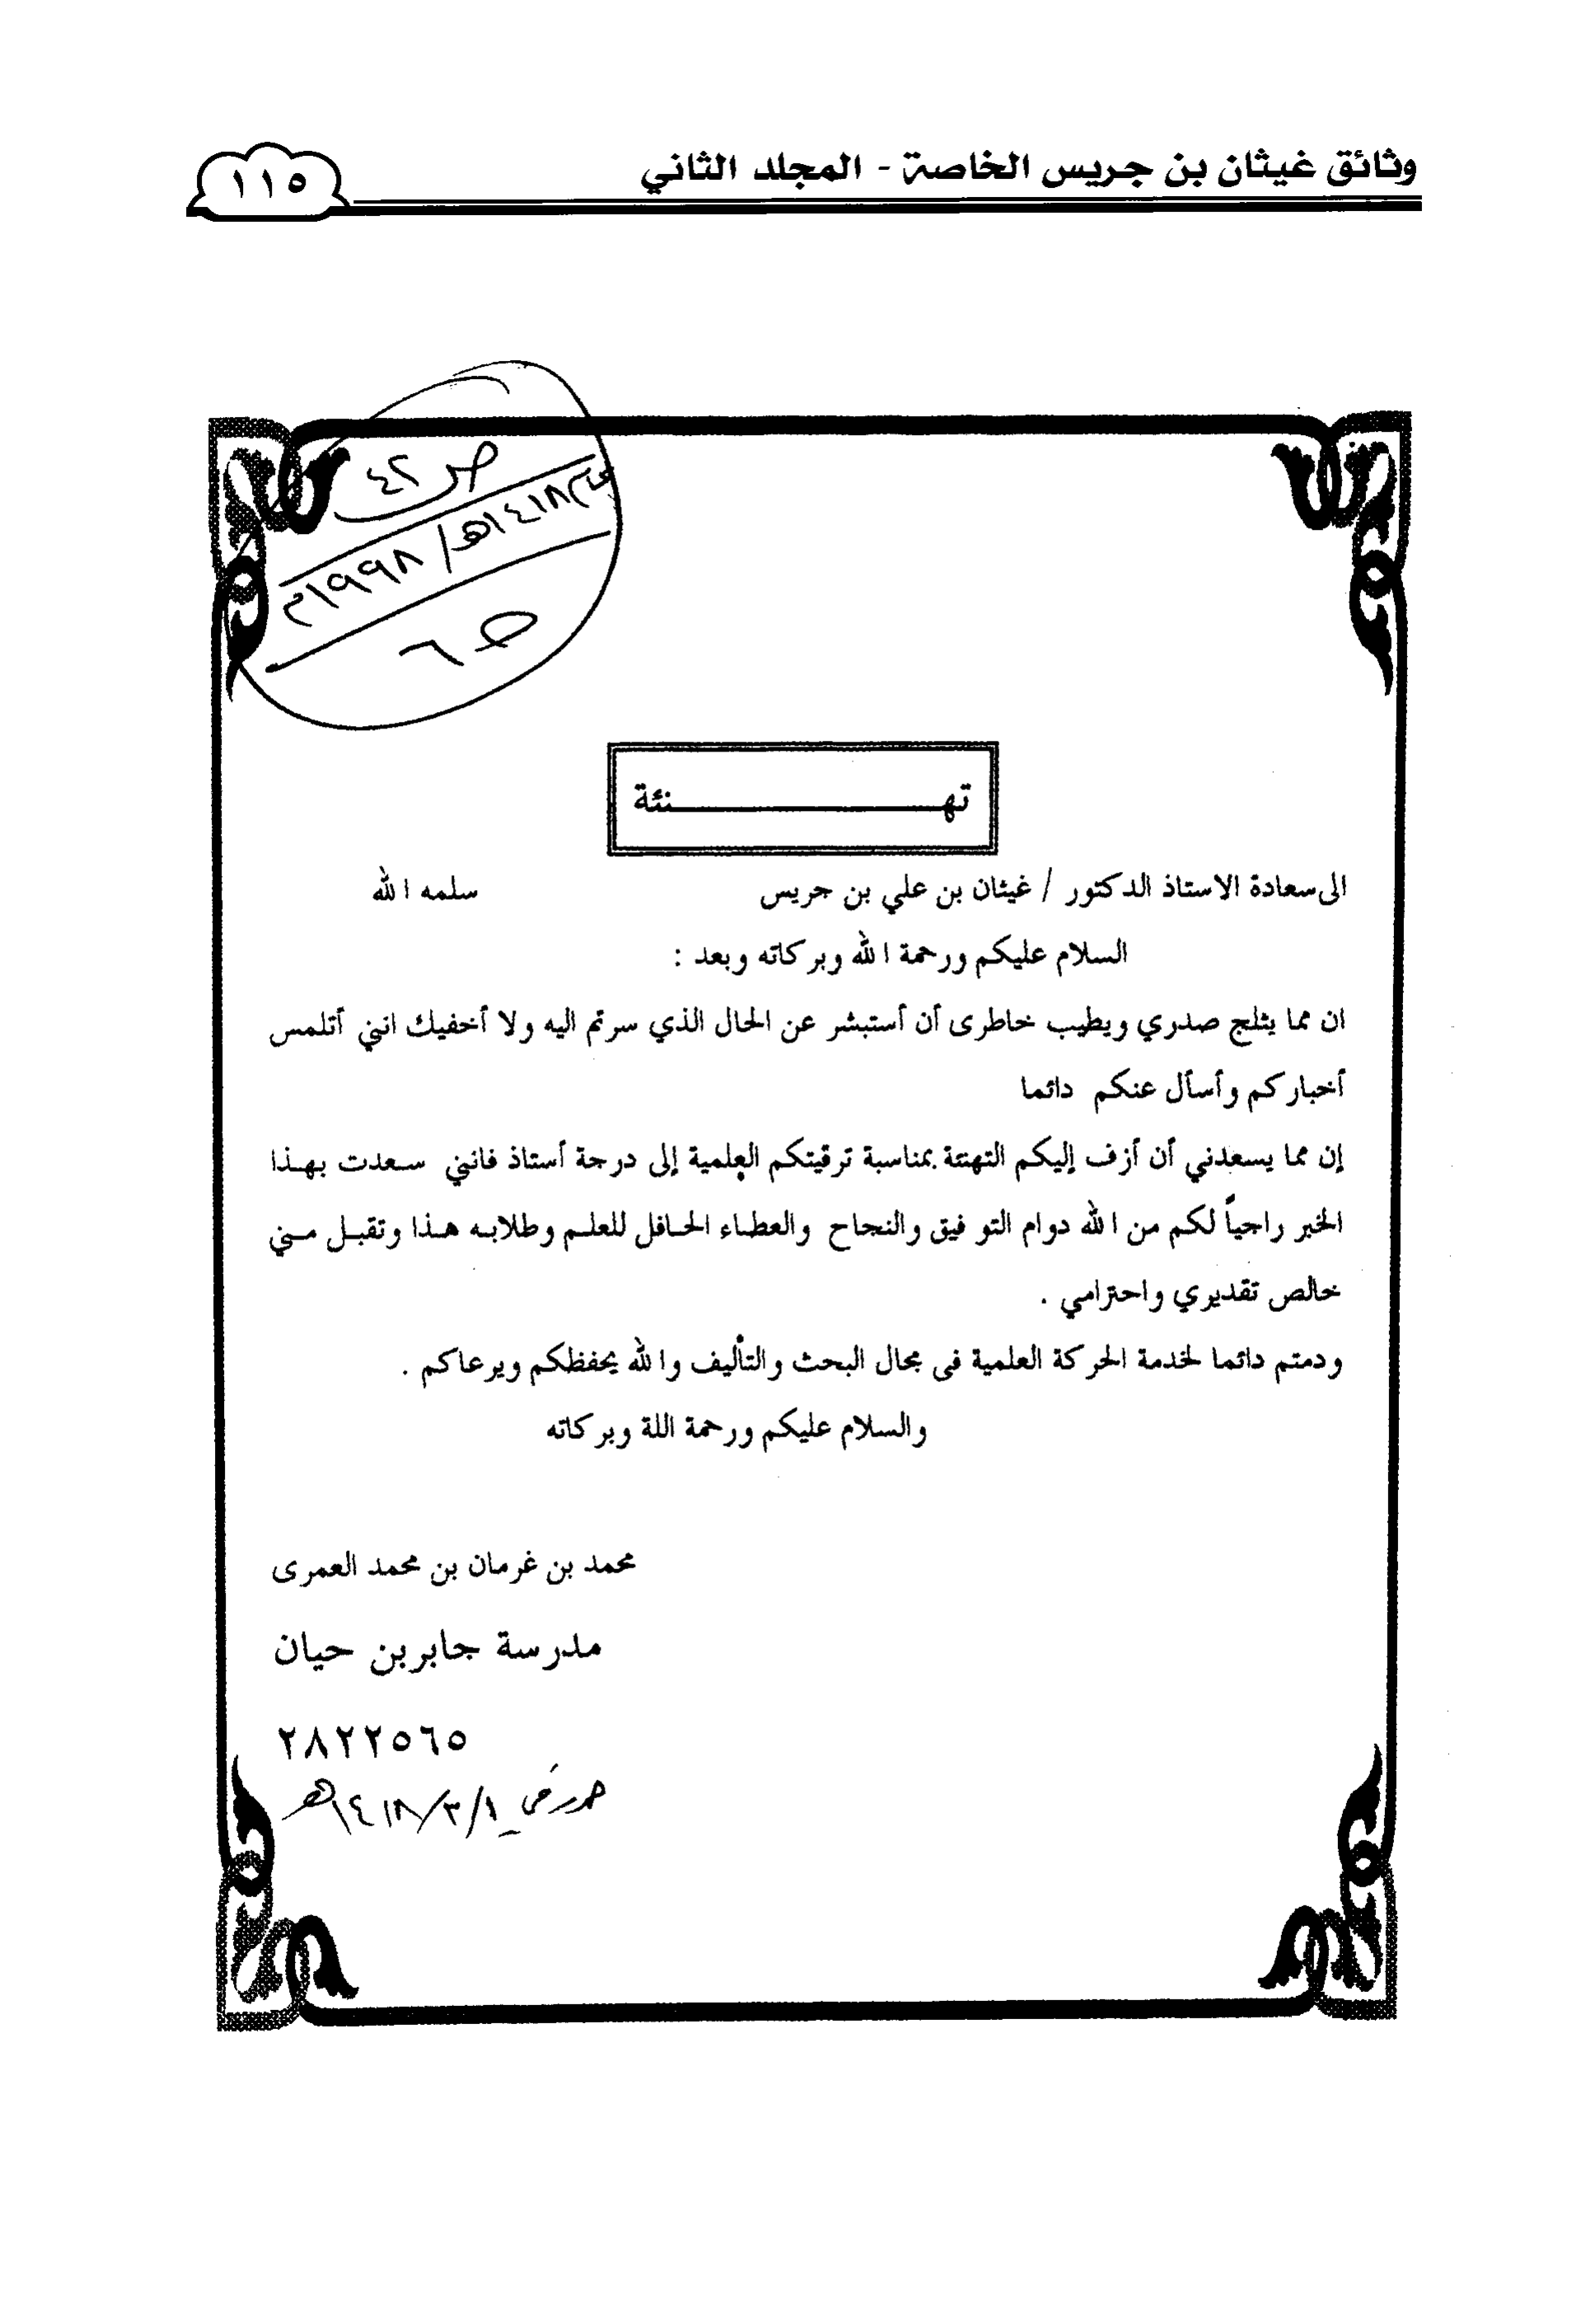 وثائق غيثان بن جريس الخاصة - المجلد الثاني
١١٥
ص ٤٢
١٤١٨هـ/ ١٩٩٨م
ص ٦
تهـــــــنئة
الى سعادة الاستاذ الدكتور / غيثان بن علي بن جريس سلمه الله
السلام عليكم ورحمة الله وبركاته وبعد :
ان مما يثلج صدري ويطيب خاطرى أن أستبشر عن الحال الذي سرتم اليه ولا أخفيك انني أتلمس
أخباركم وأسأل عنكم دائما
إن مما يسعدني أن أزف إليكم التهنئة بمناسبة ترقيتكم العلمية إلى درجة أستاذ فانني سعدت بهذا
الخبر راجياً لكم من الله دوام التوفيق والنجاح والعطاء الحافل للعلم وطلابه هذا وتقبل مني
خالص تقديري واحترامي .
ودمتم دائما لخدمة الحركة العلمية فى مجال البحث والتأليف والله يحفظكم ويرعاكم .
والسلام عليكم ورحمة اللة وبركاته
محمد بن غرمان بن محمد العمرى
مدرسة جابربن حيان
٢٨٢٢٥٦٥
١/٣/١٤١٨هـ